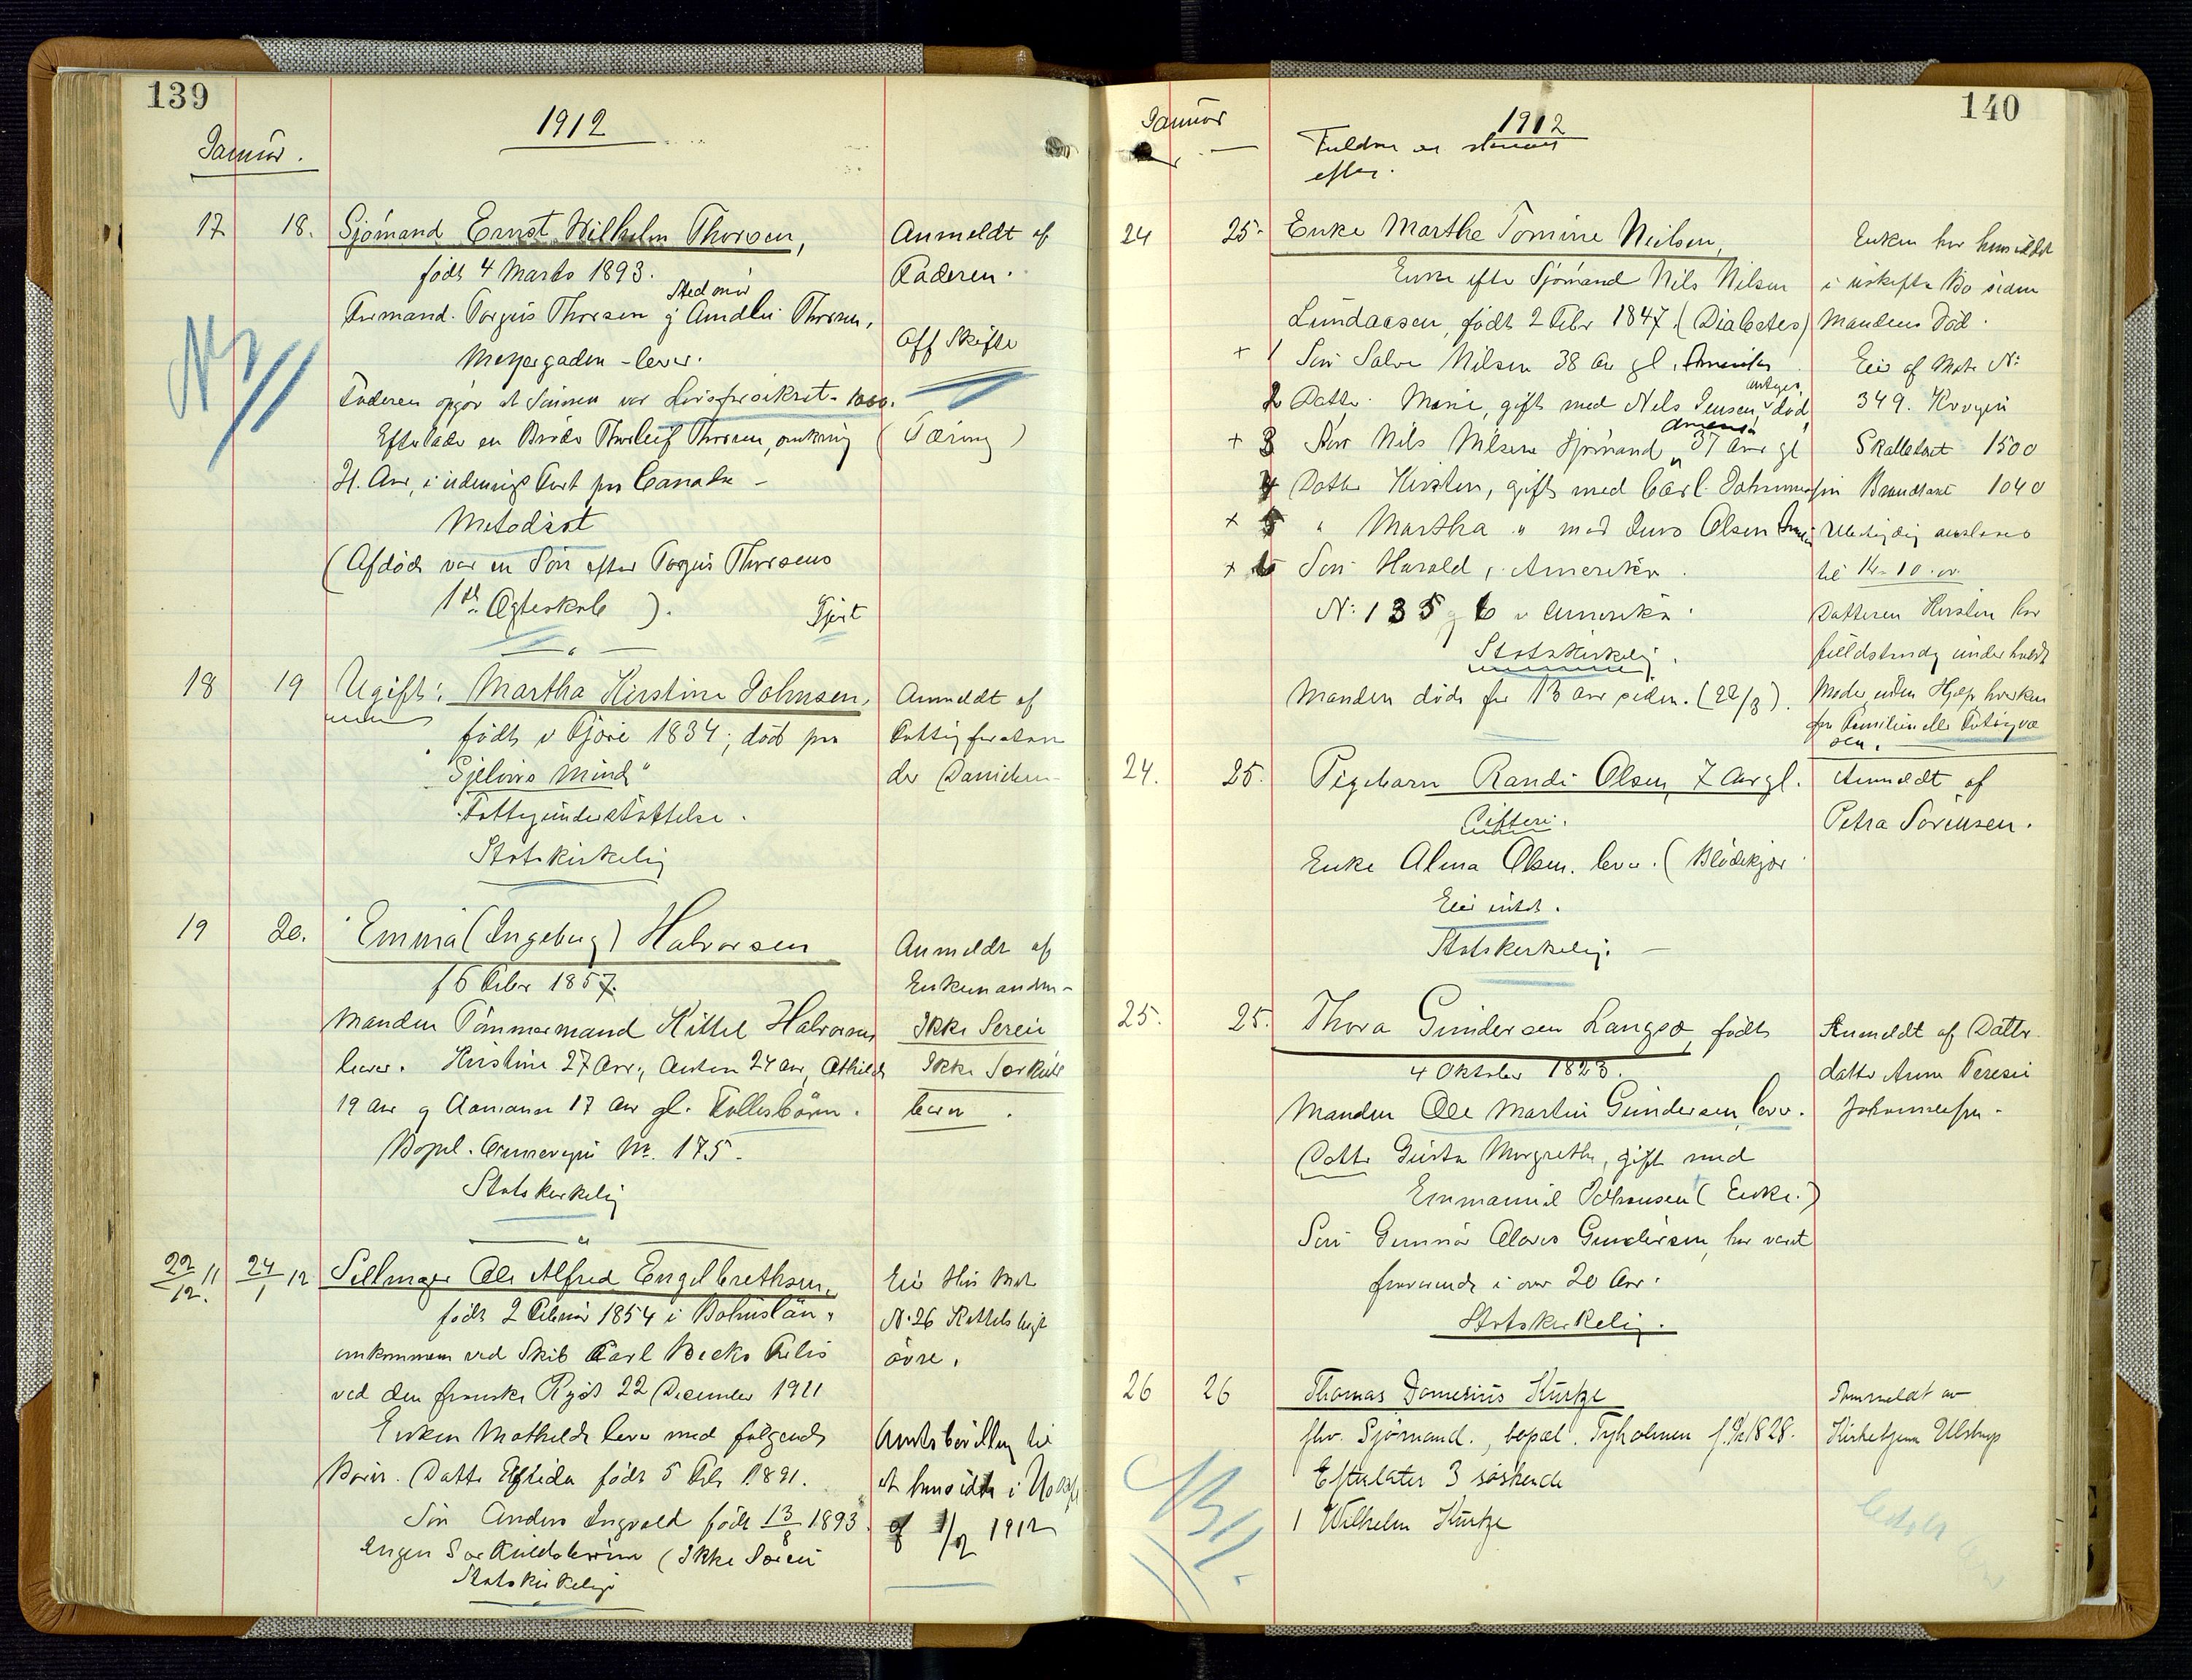 139
1912
Januar.
17 18. Sjömand Ernst Wilhelm Thorsen,
födt 4 Marts 1893.
Stedmor
Formand. Torgius Thorsen g Amalie Thorsen,
lever.
Faderen opgav at Sönnen var Livsforsikret - 1000.
Efterlader en Broder Thorleif Thorsen, omkring
21. Aar, i udenrigs Fart paa Canada -
Metodist
(Afdöde var en Sön efter Torgius Thorsens
1ste Ægteskab ).
Anmeldt af
Faderen.
Off Skifte
(Tæring)
18 19 Ugift: Martha Kirstine Johnsen,
födt i Gjöre 1834; död paa
"Sjelvins Minde"
Fattigunderstöttelse.
Statskirkelig
Anmeldt af
Fattigforstan
der Danielsen
19 20. Emma (Ingeborg) Halvorsen
16 Febr 1857.
Manden Tömmermand Kittel Halvorsen
lever. Kirstine 27 Aar, Anton 24 aar, Athilde
19 aar g Aamann 17 aar gl. Fellesbörn.
Bopæl. No. 175.
Statskirkelig
Anmeldt af
Enkemanden -
Ikke Sereie
Ikke Særkuls
barn.
22/12. 11 24/1 12 Seilmager Ole Alfred Engelbrethsen,
födt 2 Februar 1854 i Bohuslän,
omkommen ved Skib Carl Becks Forlis
ved den franske Kyst 22 December 1911
Enken Mathilde lever med fölgende
Börn. Datter födt 5 Feb 1891.
Sön Anders Ingvald födt 13/8 1893.
Ingen Særkuldsbörn (Ikke Særeie
Statskirkelige
Eier Hus Matr
N. 26 Kittelsbugt
övre.
Amtsbevilling til
at hensidde i Uskift
af 1/2 1912
140
Januar
1912
Fuldm er skrevet
efter.
24 25. Enke Marthe Tomine Nielsen,
Enke efter Sjömand Nils Nilsen
Lundaasen, födt 2 Febr 1847. (Diabetes)
+ 1 Sön Salve Nilsen 38 aar gl. Amerika
2 Datter Marie, gift med Nils Jensen, död,
Amerika
+ 3 Sön Nils Nilsen Sjömand, 37 aar gl
4 Datter Kirsten, gift med Carl Johannesen
+ 5 " Martha " med Jens Olsen
+ 6 Sön Harald, i Amerika.
N: 1 3 5 g 6 i Amerika.
Statskirkelig.
Manden döde for 13 aar siden. (22/8).
Enken har hensiddet
i uskiftet Bo siden
Mandens Död.
Eier af Matr N:
349.
Skattetaxt 1500
Brandtaxt 1040
Ubetydelig
til Kr 10.00
Datteren Kirsten har
fuldstændig underholdt
Moder uden Hjælp hverken
fra Familien eller Fattigvæ
sen.
24. 25. Pigebarn Randi Olsen, 7 Aar gl.
Enke Alma Olsen. lever.
Eier intet.
Statskirkelig.
Anmeldt af
Petra Sørensen.
25. 25. Thora Gundersen Langsæ, födt
4 Oktober 1823.
Manden Ole Martin Gundersen, lever.
Datter Gusta Margrethe, gift med
Emmanuel Johansen (Enke.)
Sön Gunnar Olaves Gundersen, har været
fraværende i over 20 Aar.
Statskirkelig.
Anmeldt af Datter
datter Anna Teresie
Johannessen.
26 26 Thomas Domesius Kurtze
fhv. Sjømand., bopæl. Tyholmen
Efterlater 3 søskende
1 Wilhelm Kurtze
Anmeldt av
Kirketjener Ulstrup